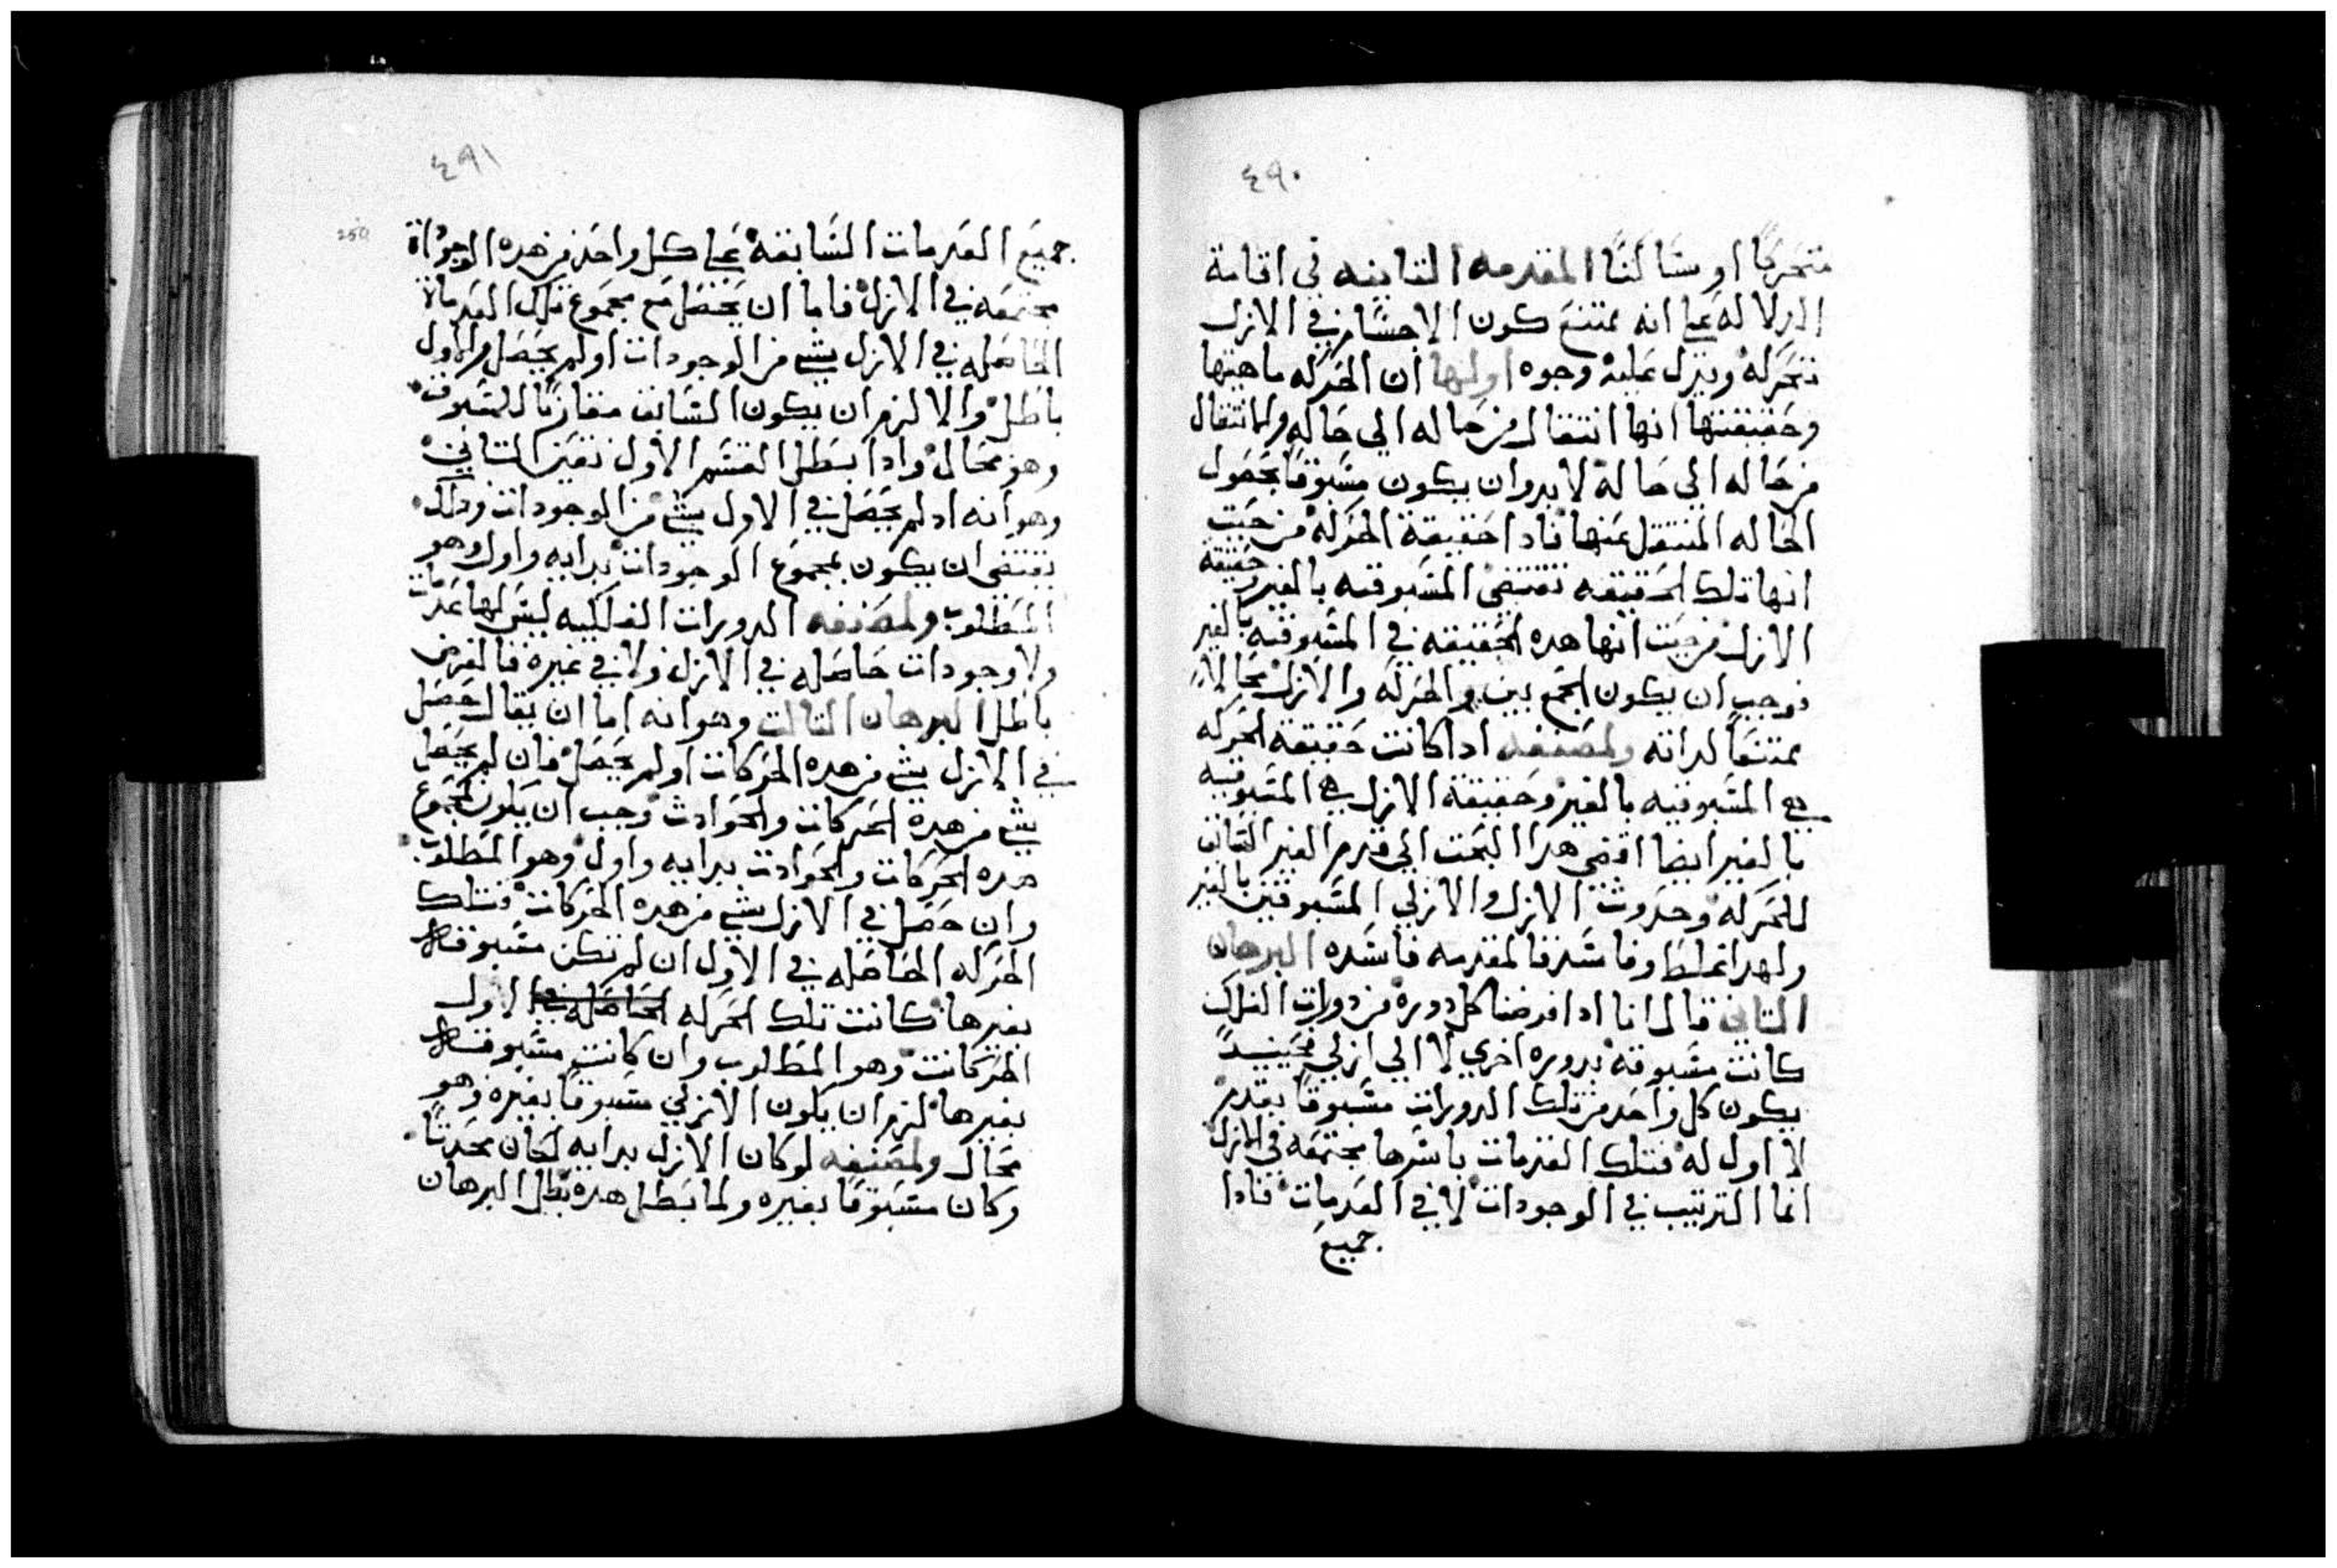 ٤٩٠
متحركًا او ساكنًا المقدمه الثانيه في اقامة
الدلاله على انه يمتنع كون الاجسام في الازل
متحركه ويدل عليه وجوه اولها ان الحركه ماهيتها
وحقيقتها انها انتقال من حاله الي حاله والانتقال
من حاله الي حالة لابد وان يكون مسبوقًا بحصول
الحاله المنتقل عنها فاذا حقيقة الحركه من حيث
انها تلك الحقيقه تقتضى المسبوقيه بالغير وحقيقة
الازل من حيث انها هده الحقيقه في المسبوقيه بالغير
فوجب ان يكون الجمع بين الحركه والازل محالًا
ممتنعًا لداته ولمصنفه ادا كانت حقيقة الحركه
هي المسبوقيه بالغير وحقيقة الازل هي المسبوقيه
بالغير ايضا اقتضى هدا البحث الي قدم الغير السابق
للحركه وحدوث الازل والازلي المسبوقين بالغير
ولهدا غلط وفاسد فالمقدمه فاسده البرهان
الثاني قال انا ادا فرضنا كل دوره من دورات الفلك
كانت مسبوقه بدوره اخري لا الي ازلي فحينيدً
يكون كل واحد من تلك الدورات مسبوقًا بعدم
لا اول له فتلك العدمات باسرها مجتمعه في الازل
انما الترتيب في الوجودات لا في العدمات فادا
جميع
٤٩١
250
جميع العدمات السابقه على كل واحد من هده الوجوداة
مجتمعه في الازل فاما ان يحصل مع مجموع تلك العدماة
الحاصله في الازل شي من الوجودات او لم يحصل والاول
باطل والا لزم ان يكون السابق مقارنًا للمسبوق
وهو محال وادا بطل القسم الاول تعين الثاني
وهو انه ادلم يحصل في الاول شي من الوجودات ودلك
يقتضى ان يكون لمجموع الوجودات بدايه واول وهو
المطلوب ولمصنفه الدورات الفلكيه ليس لها عدمات
ولا وجودات حاصله في الازل ولا في غيره فالفرض
باطل البرهان الثالث وهو انه اما ان يقال حصل
في الازل شي من هده الحركات او لم يحصل فان لم يحصل
شي من هده الحركات والحوادث وجب ان يكون لمجموع
هده الحركات والحوادث بدايه واول وهو المطلوب
وان حصل في الازل شي من هده الحركات فتلك
الحركه الحاصله في الاول ان لم تكن مسبوقه
بغيرها كانت تلك الحركه الحاصله في الاول
الحركات وهو المطلوب وان كانت مسبوقه
بغيرها لزم ان يكون الازلي مسبوقًا بغيره وهو
محال ولمصنفه لو كان الازل بدايه لكان محدثًا
وكان مسبوقًا بغيره ولما بطل هده بطل البرهان